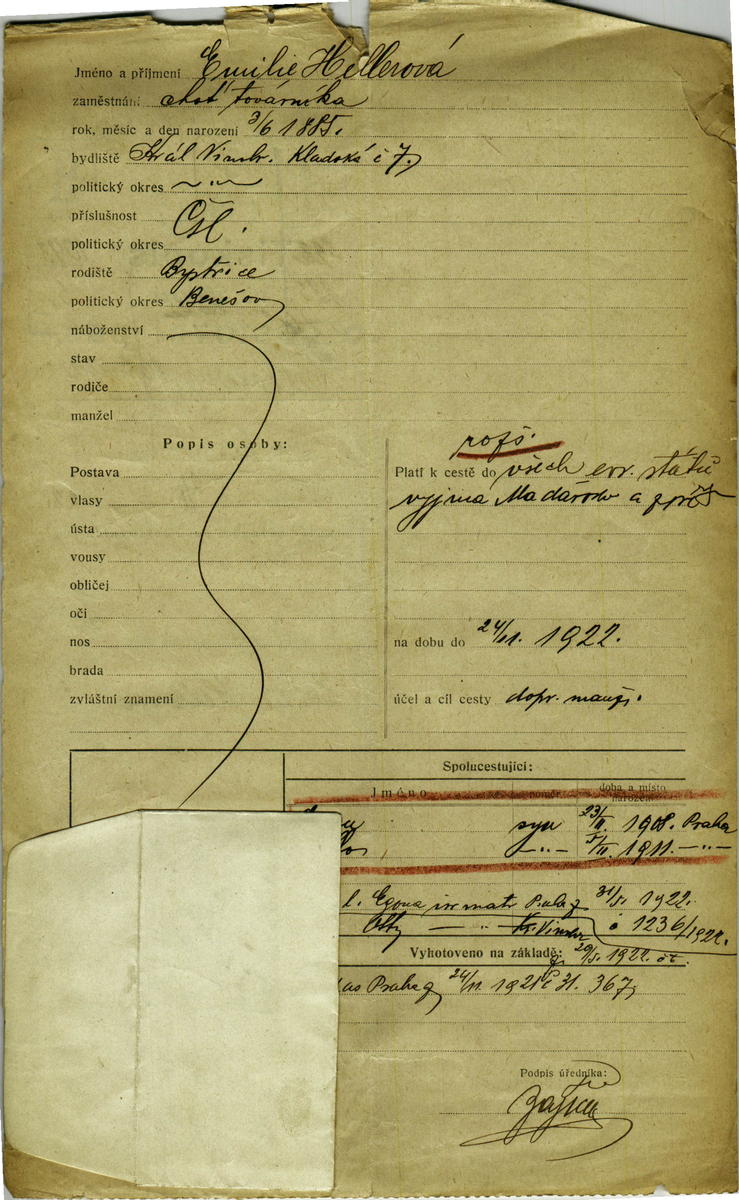 Jméno a příjmení Emilie Hellerová
zaměstnání choť továrníka
rok, měsíc a den narození 3/6 1885.
bydliště Král Vinohr. Kladská č 7.
politický okres —"—
příslušnost Čsl.
politický okres
rodiště Bystřice
politický okres Benešov
náboženství
stav
rodiče
manžel
Popis osoby:
Postava
vlasy
ústa
vousy
obličej
oči
nos
brada
zvláštní znamení
rozš.
Platí k cestě do všech evr. států
vyjma Maďarsko a zpět
na dobu do 24/11. 1922.
účel a cíl cesty dopr. manž.
Spolucestující:
Jméno poměr doba a místo
narození
syn 23/II. 1908. Praha
—"— 5/II. 1911. —"—
l. Egona iz matr Praha 31/5. 1922.
Otty — " — Kr. Vinohr č 1236/1922.
Vyhotoveno na základě: 29/5. 1922.
pas Praha 24/11 1921 č 31. 367
Podpis úředníka: